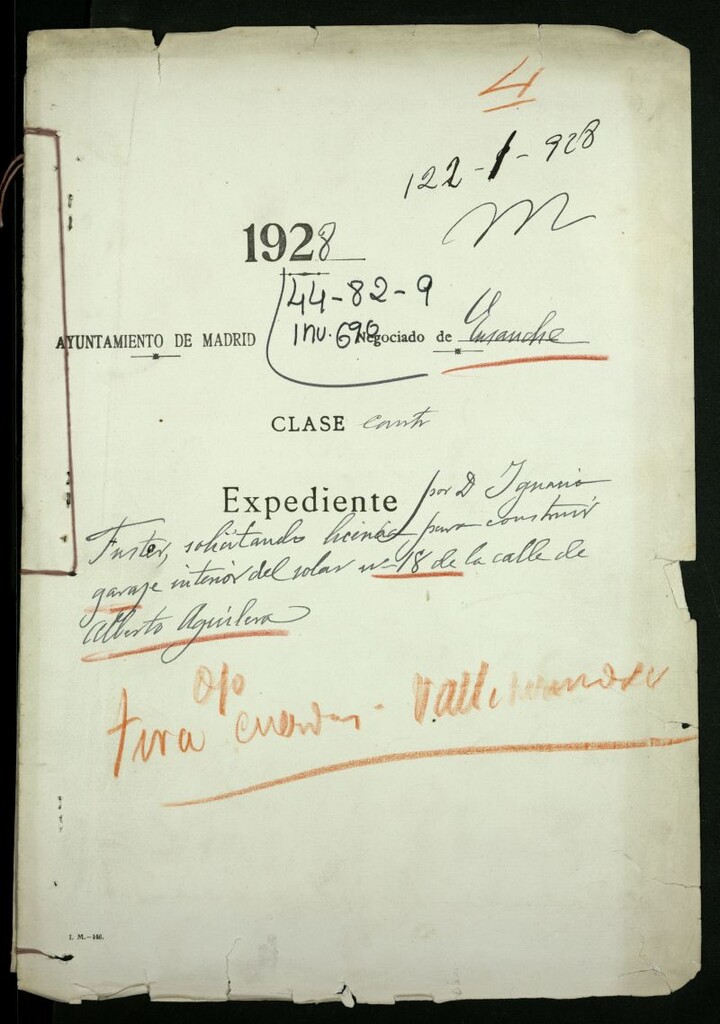 4
122-1-928
1928
44-82-9
Inv. 696
AYUNTAMIENTO DE MADRID Negociado de Ensanche
CLASE const
Expediente por D Ignacio
Fuster, solicitando licencia para construir
garaje interior del solar nº 18 de la calle de
Alberto Aguilera
Ojo
tira cuerdas - Vallehermoso
I. M.-146.